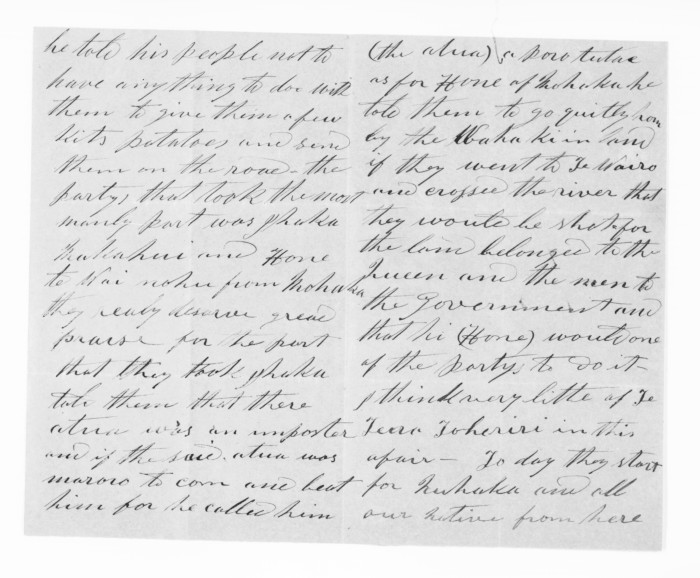 he told his people not to
have anything to doo with
them to give them a few
kits potatoes and send
them on the road - the
partys that took the most
manly part was Ihaka
Kakahui and Hone
te Wai nohu from Mohaka
they realy deserve great
praise for the part
that they took Ihaka
told them that there
atua was an imposter
and if the said atua was
maroro to com and beat
him for he called him
(the atua) a poro tutae
as for Hone of Mohaka he
told them to go quitly hom
by the Waha ki in land
if they went to Te Wairo
and crossed the river that
they would be shot for
the land belonged to the
Queen and the men to
the Government and
that hi (Hone) would one
of the partys to do it -
I think very little of Te
Teira Toheriri in this
afair - To day they start
for Nuhaka and all
our native from here